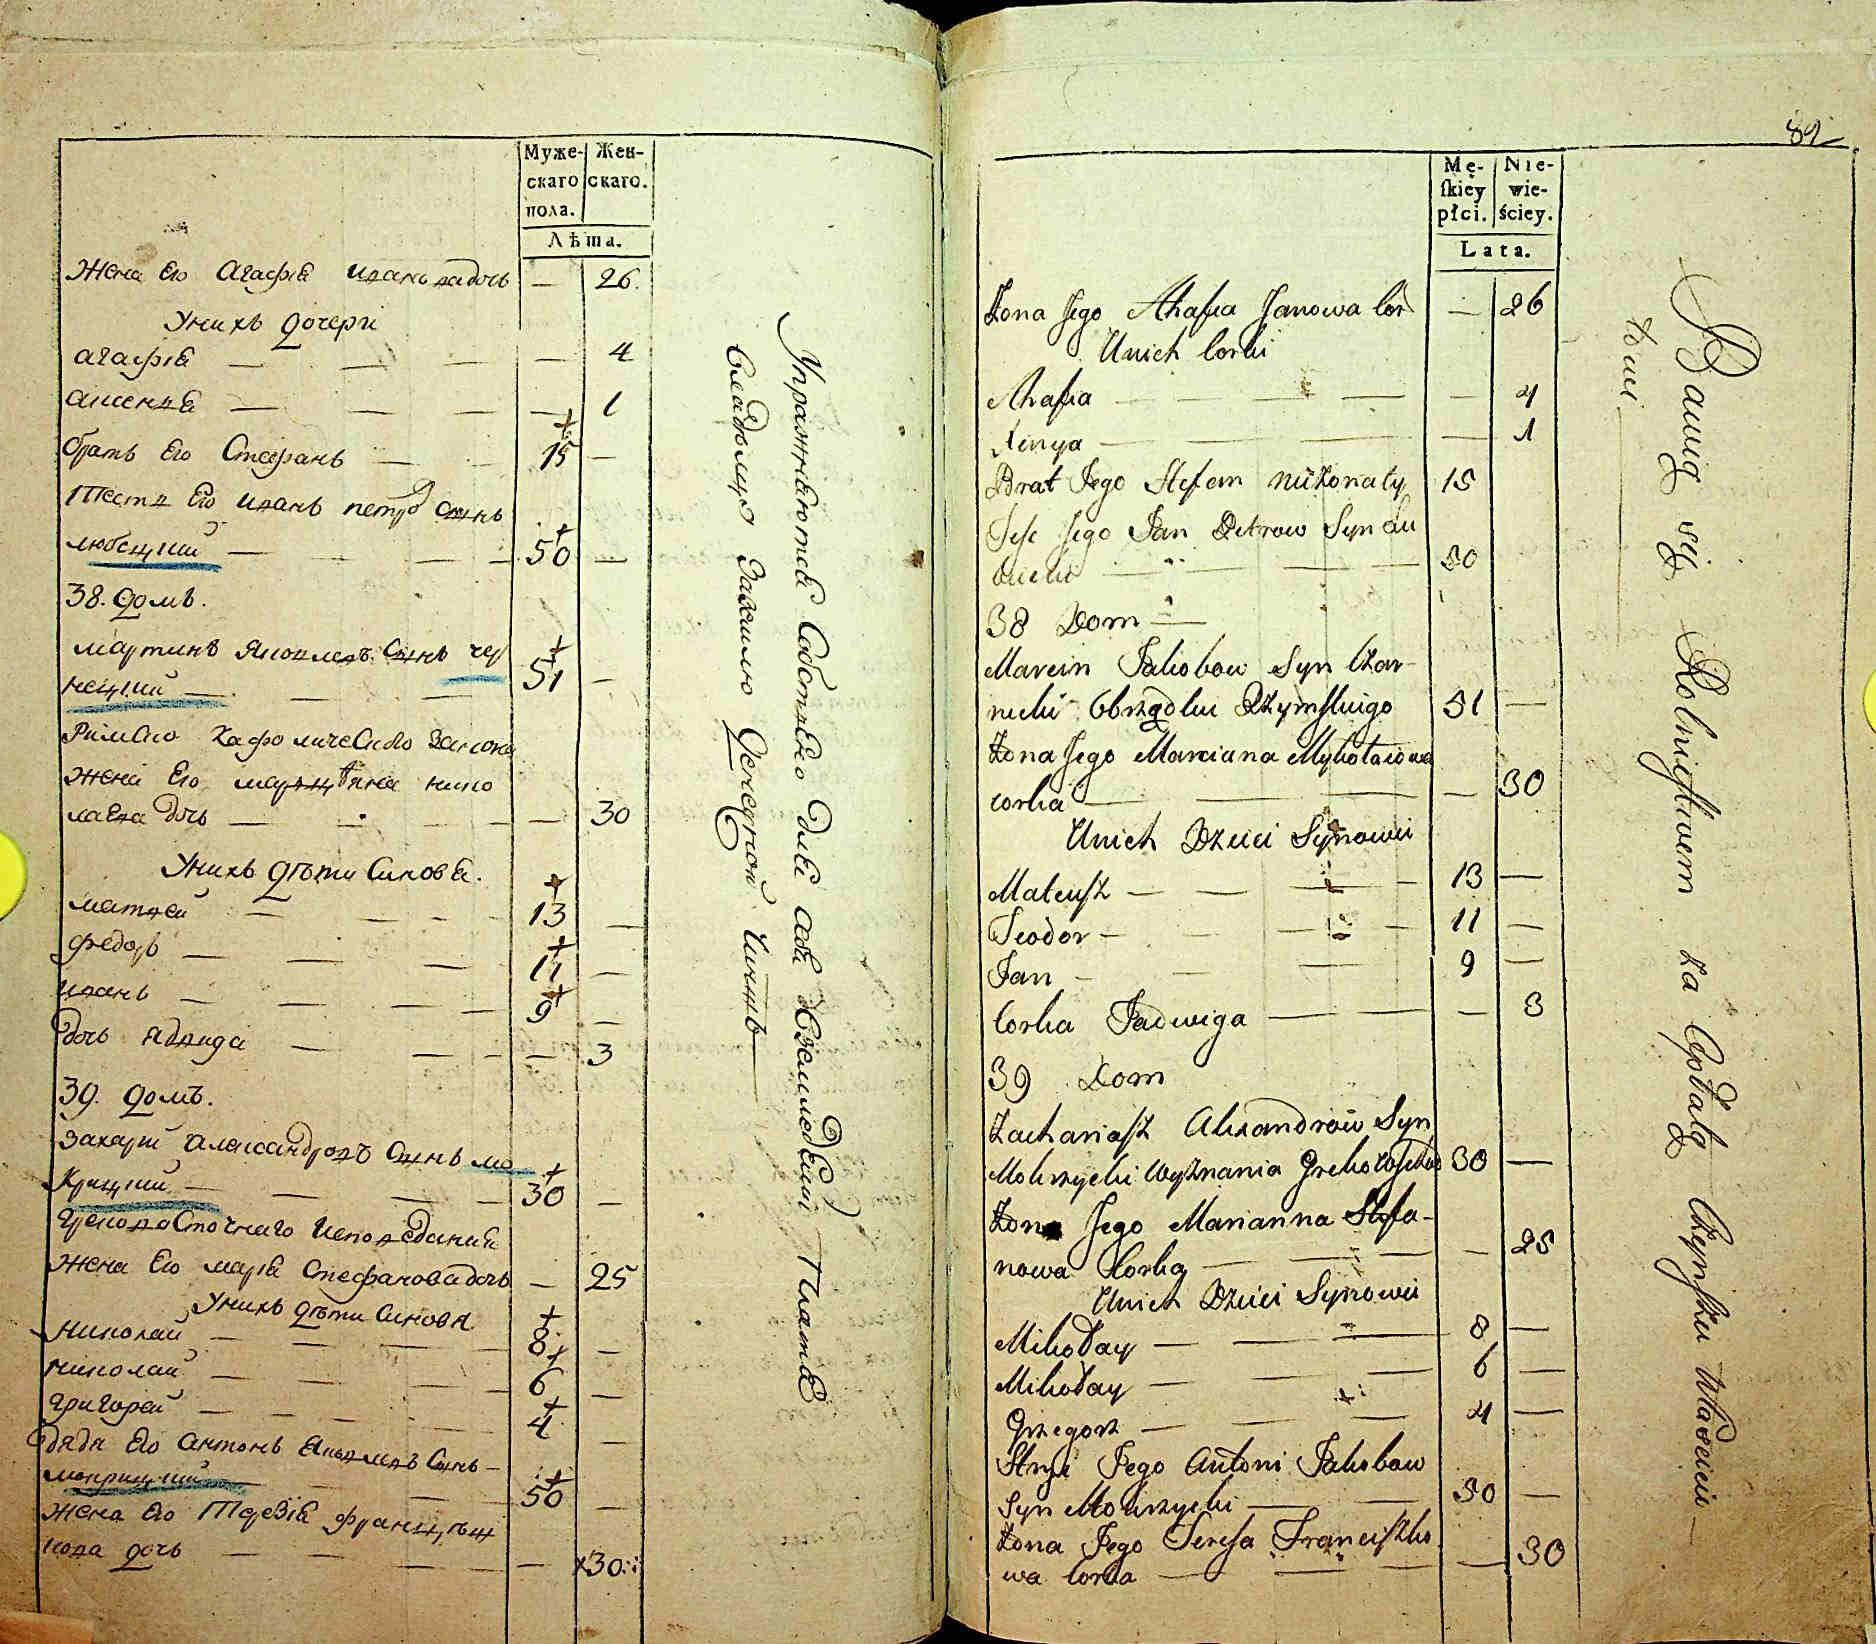 Муже-
скаго
пола.
Жен-
скаго.
Лѣта.
Жена Его Агафiя Иванова дочь — 26.
Унихъ дочери
агафiя — — — — 4
аксенiя — — — — 1
братъ Его Стефанъ — — 15 —
Тесть Его Иванъ петровъ Сынъ
любецкий — — — 50 —
38. домъ.
мартинъ Яковлевъ Сынъ чер
нецкий — — — 51 —
Римско Кафолическаго Закона
жена Его марцiяна нико
лаева дочь — — — 30
Унихъ дѣти Синовя.
матвей — — — 13 —
федоръ — — — 11 —
иванъ — — — 9 —
дочь Ядвига — — — 3
39. домъ.
Захарiй александровъ Сынъ мо
Крицкий — — — 30 —
Грековосточнаго Исповедания
жена Его марiя Стефанова дочь — 25
Унихъ дѣти Синовя.
николай — — — 8 —
николай — — — 6 —
григорей — — — 4 —
дядя Его антонъ Яковлевъ Сынъ —
мокрицкий — — — 50 —
жена Его Терезiя францишк
нова дочь — — — 30
Упражняются Собственно для себя Хлебопашеством Платят
82
Mę-
skiey
płci.
Nie-
wie-
ściey.
Lata.
Żona Jego Ahafia Janowa cor — 26
Unich Corki
Ahafia — — — — 4
Xenya — — — — 1
Brat Jego Stefan nieżonaty 15
Teść Jego Jan Petrow Syn Lu
biecki — — — 50
38 Dom —
Marcin Jakobow Syn Czar-
niecki Obrządku Rzymskiego 51 —
Żona Jego Marciana Mykołaiowa
corka — — — 30
Unich Dzieci Synowie
Mateusz — — — 13 —
Teodor — — — 11 —
Jan — — — 9 —
Corka Jadwiga — — — 3
39 Dom
Zachariasz Alexandrow Syn
Mokrzycki Wyznania 30 —
Żona Jego Marianna Stefa-
nowa Corka — — — 25
Unich Dzieci Synowie
Mikołay — — — 8 —
Mikołay — — — 6 —
Grzegorz — — — 4 —
Stryi Jego Antoni Jakobow
Syn Mokrzycki — — 50 —
Żona Jego Teresa Franciszko
wa Corka — — — 30
Bawią się Rolnictwem za Opłatą Czynszu Właścicie-
lowi